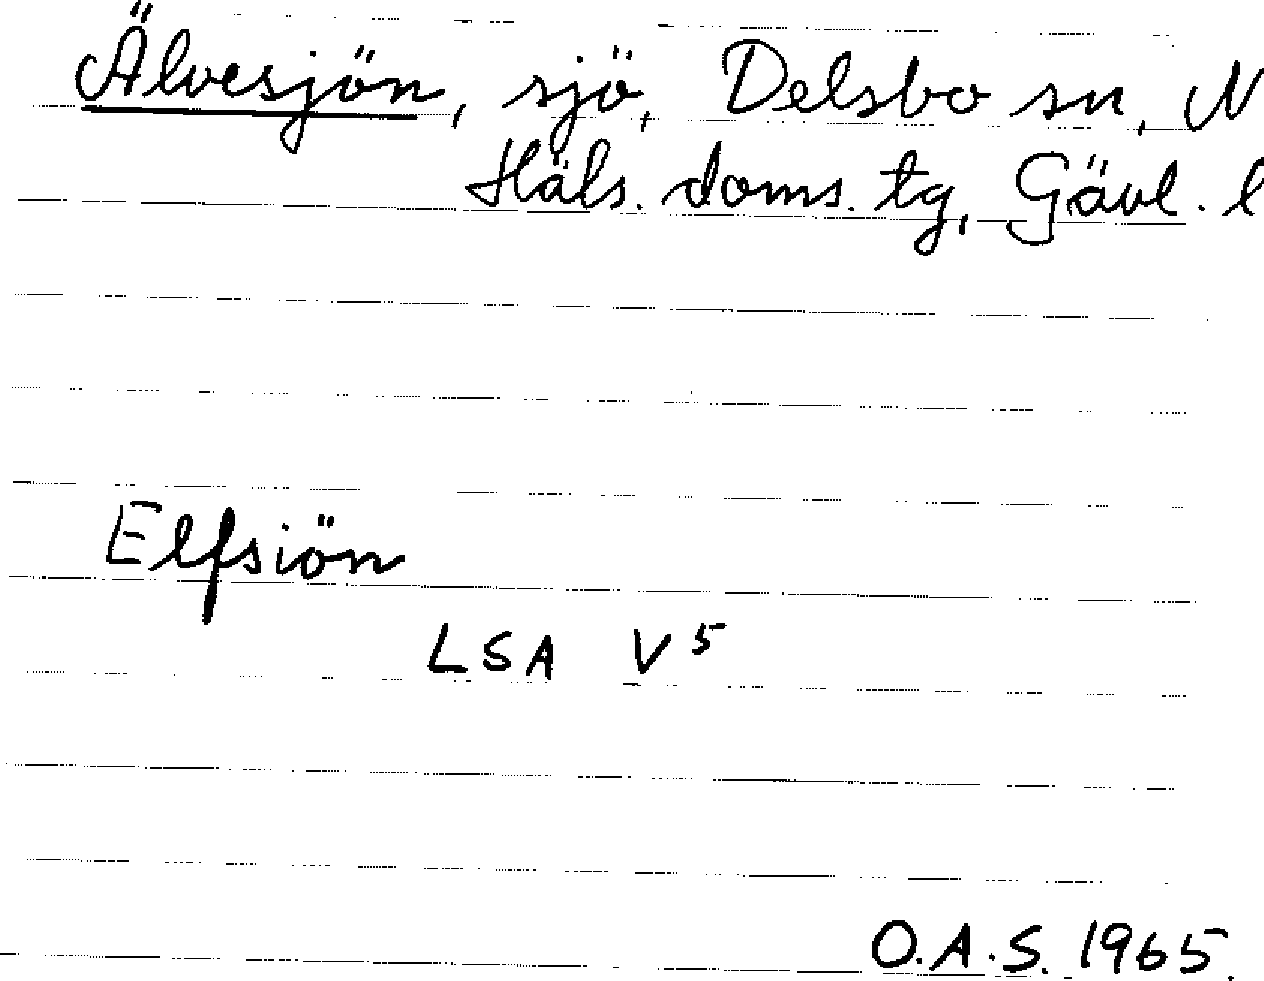 Älvesjön, sjö, Delsbo sn, N
Häls. doms. tg, Gävl. l
Elfsiön
LSA V5
O.A.S. 1965.